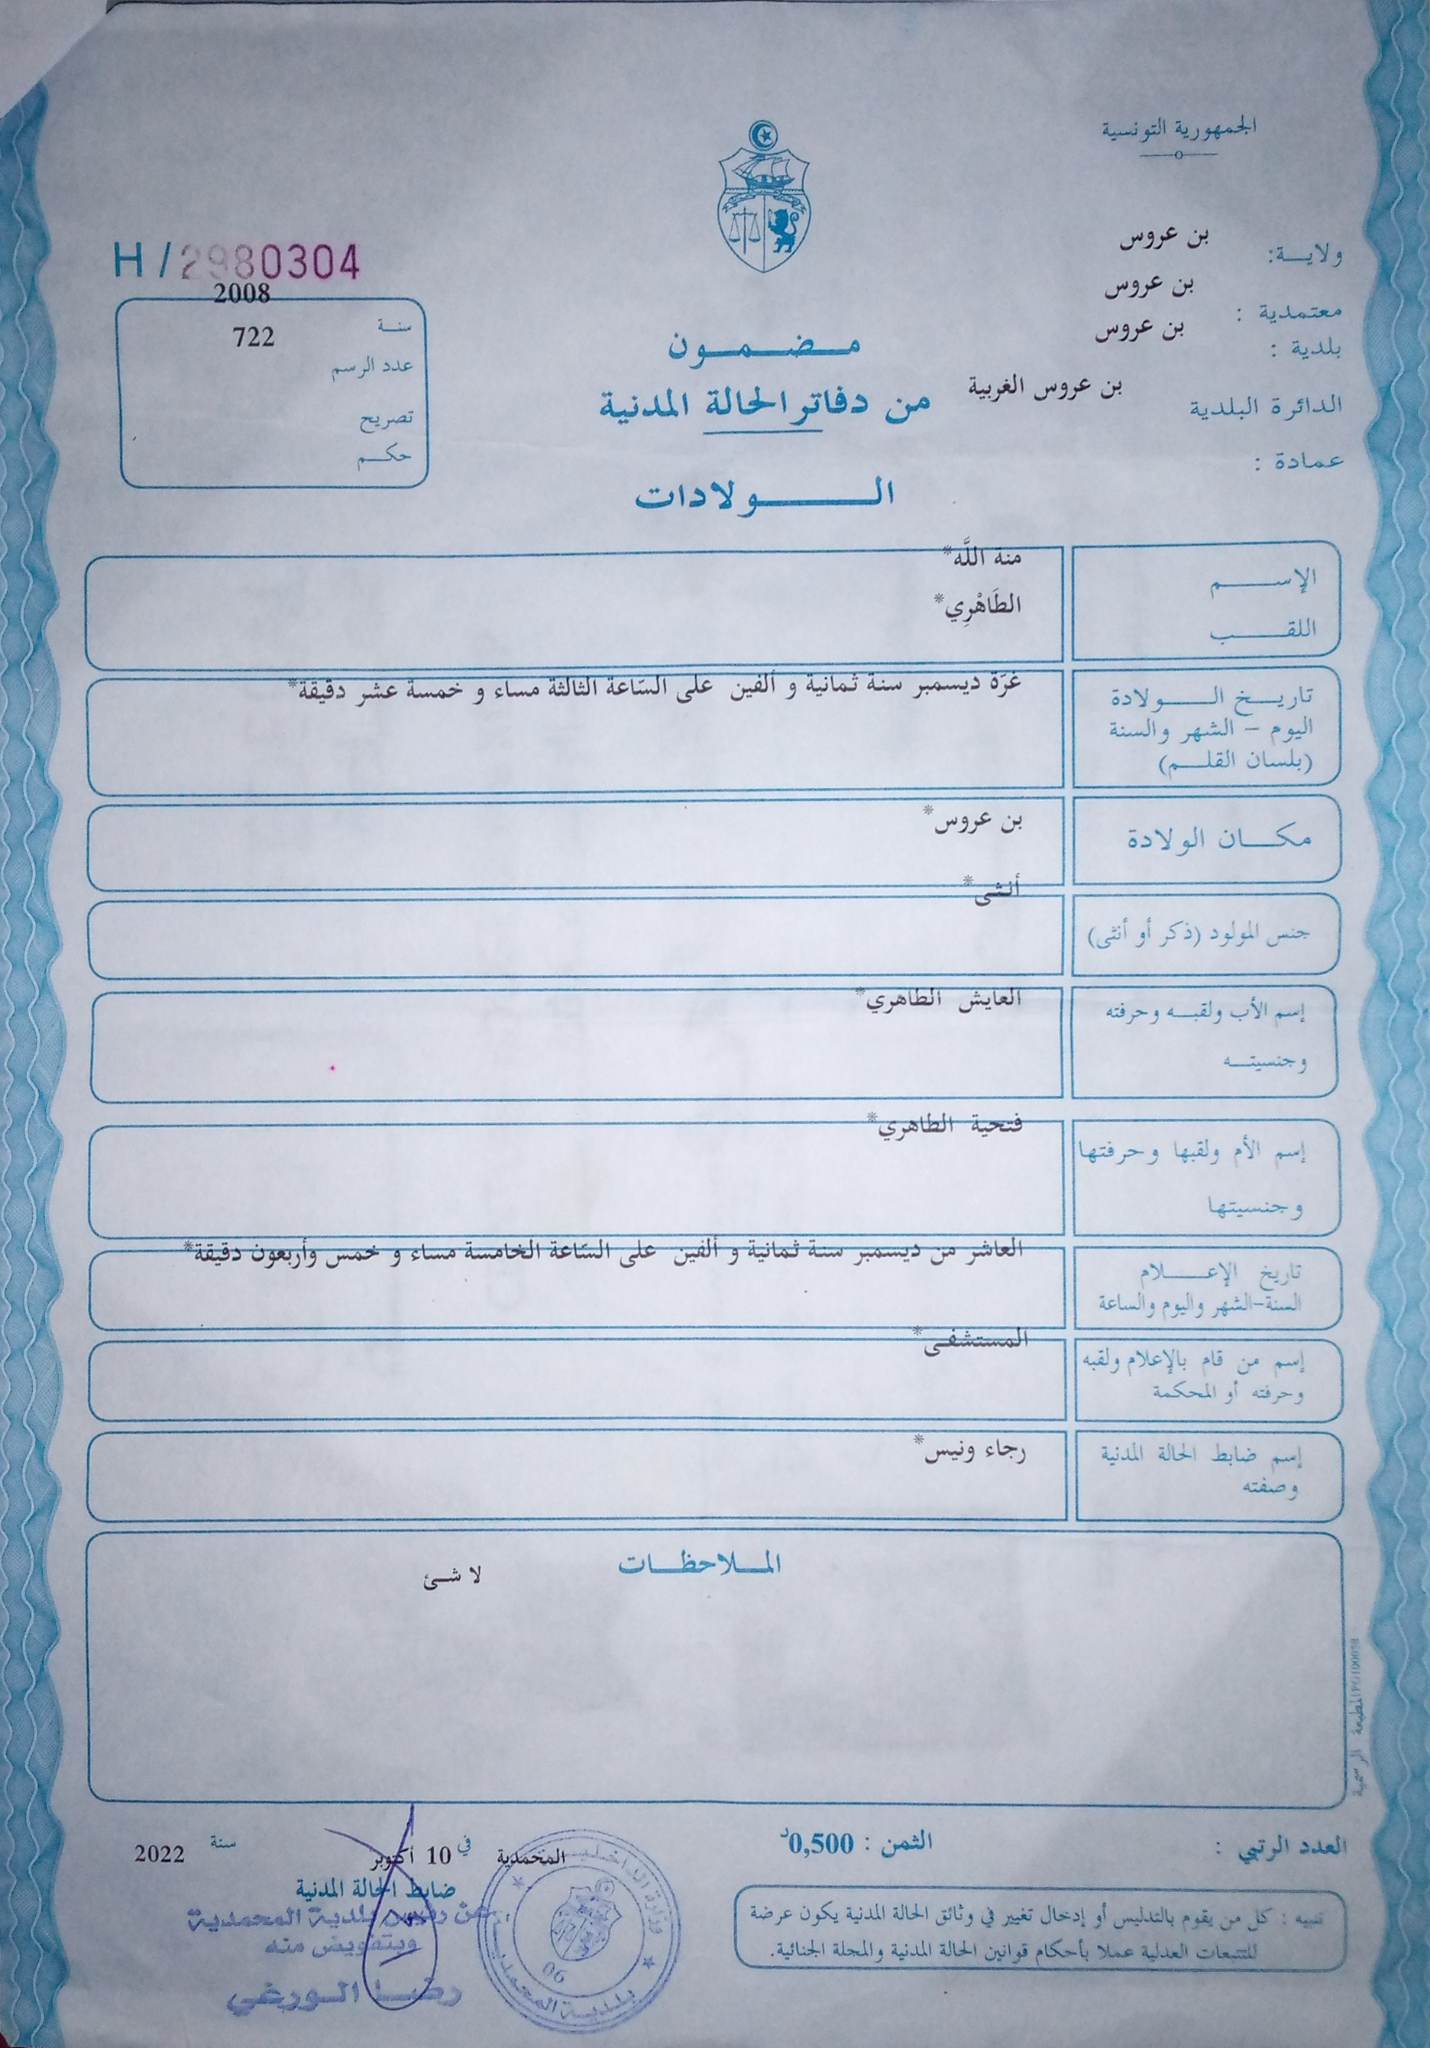 الجمهورية التونسية
ولاية: بن عروس
معتمدية : بن عروس
بلدية : بن عروس
الدائرة البلدية بن عروس الغربية
عمادة :
H/2980304
سنة 2008
عدد الرسم 722
تصريح
حكم
مضمون
من دفاتر الحالة المدنية
الولادات
الإسم منة اللَّه*
اللقب الطَاهْرِي*
تاريخ الولادة غرّة ديسمبر سنة ثمانية و ألفين على السّاعة الثالثة مساء و خمسة عشر دقيقة*
اليوم - الشهر والسنة
(بلسان القلم)
مكان الولادة بن عروس*
جنس المولود (ذكر أو أنثى) أنثى*
إسم الأب ولقبه وحرفته العايش الطاهري*
وجنسيته
إسم الأم ولقبها وحرفتها فتحية الطاهري*
وجنسيتها
تاريخ الإعلام العاشر من ديسمبر سنة ثمانية و ألفين على السّاعة الخامسة مساء و خمس وأربعون دقيقة*
السنة-الشهر واليوم والساعة
إسم من قام بالإعلام ولقبه المستشفى*
وحرفته أو المحكمة
إسم ضابط الحالة المدنية رجاء ونيس*
وصفته
الملاحظات
لا شئ
المطبعة الرسمية
العدد الرتبي :
الثمن : 0,500د
المحمدية في 10 أكتوبر سنة 2022
ضابط الحالة المدنية
عن رئيس بلدية المحمدية
وبتفويض منه
رضا الورغي
وزارة الداخلية
بلدية المحمدية
06
تنبيه : كل من يقوم بالتدليس أو إدخال تغيير في وثائق الحالة المدنية يكون عرضة
للتتبعات العدلية عملا بأحكام قوانين الحالة المدنية والمجلة الجنائية.